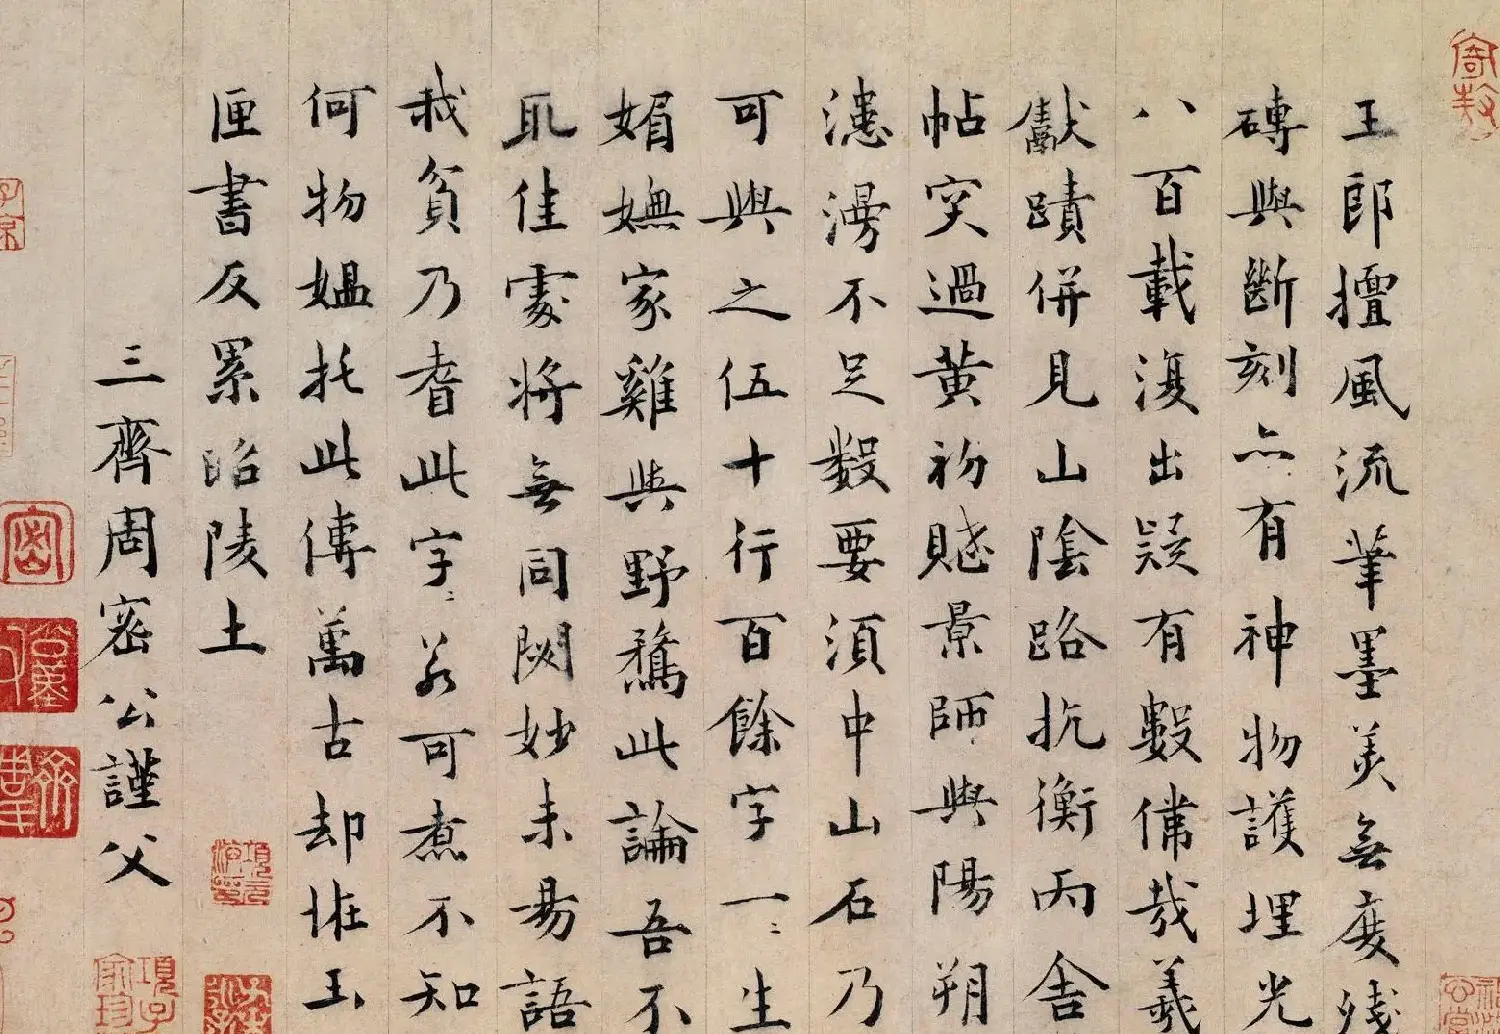 王郎擅風流筆墨美無度殘
磚與斷刻亦有神物護埋光
八百載復出疑有數俻哉羲
獻蹟併見山陰路抗衡丙舍
帖突過黃初賦景師與陽朔
漶漫不足數要須中山石乃
可與之伍十行百餘字一〻生
媚嫵家雞與野鶩此論吾不
取佳處將無同閟妙未易語
我貧乃耆此字〻若可煮不知
何物媼托此傳萬古却恠玉
匣書反累昭陵土
三齊周密公謹父